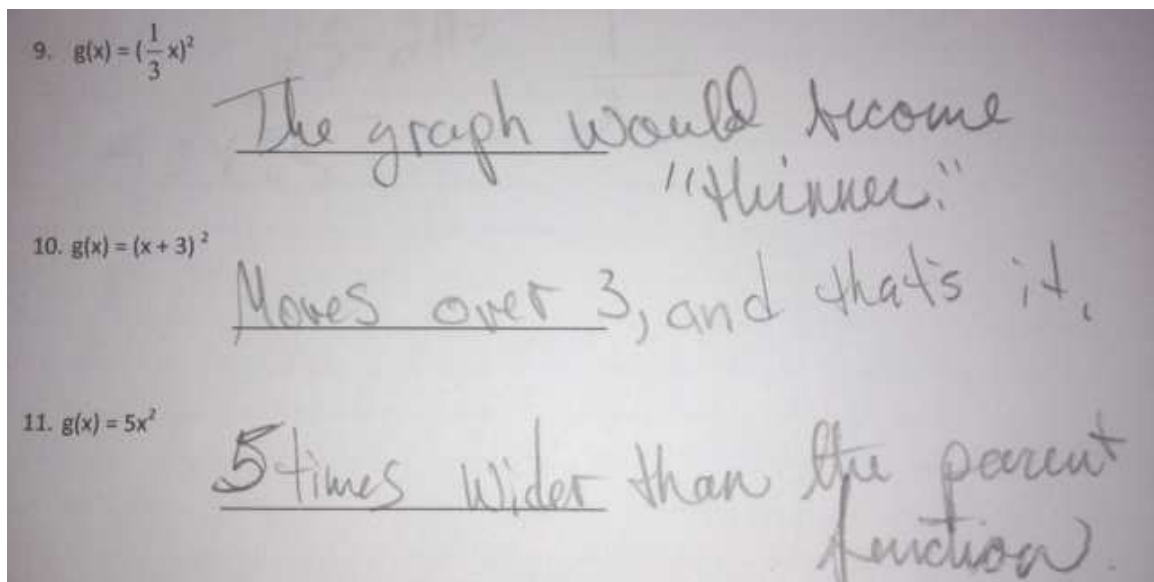 9. g(x) = (1/3 x)²
The graph would become
"thinner."
10. g(x) = (x + 3)²
Moves over 3, and that's it.
11. g(x) = 5x²
5 times wider than the parent
function.